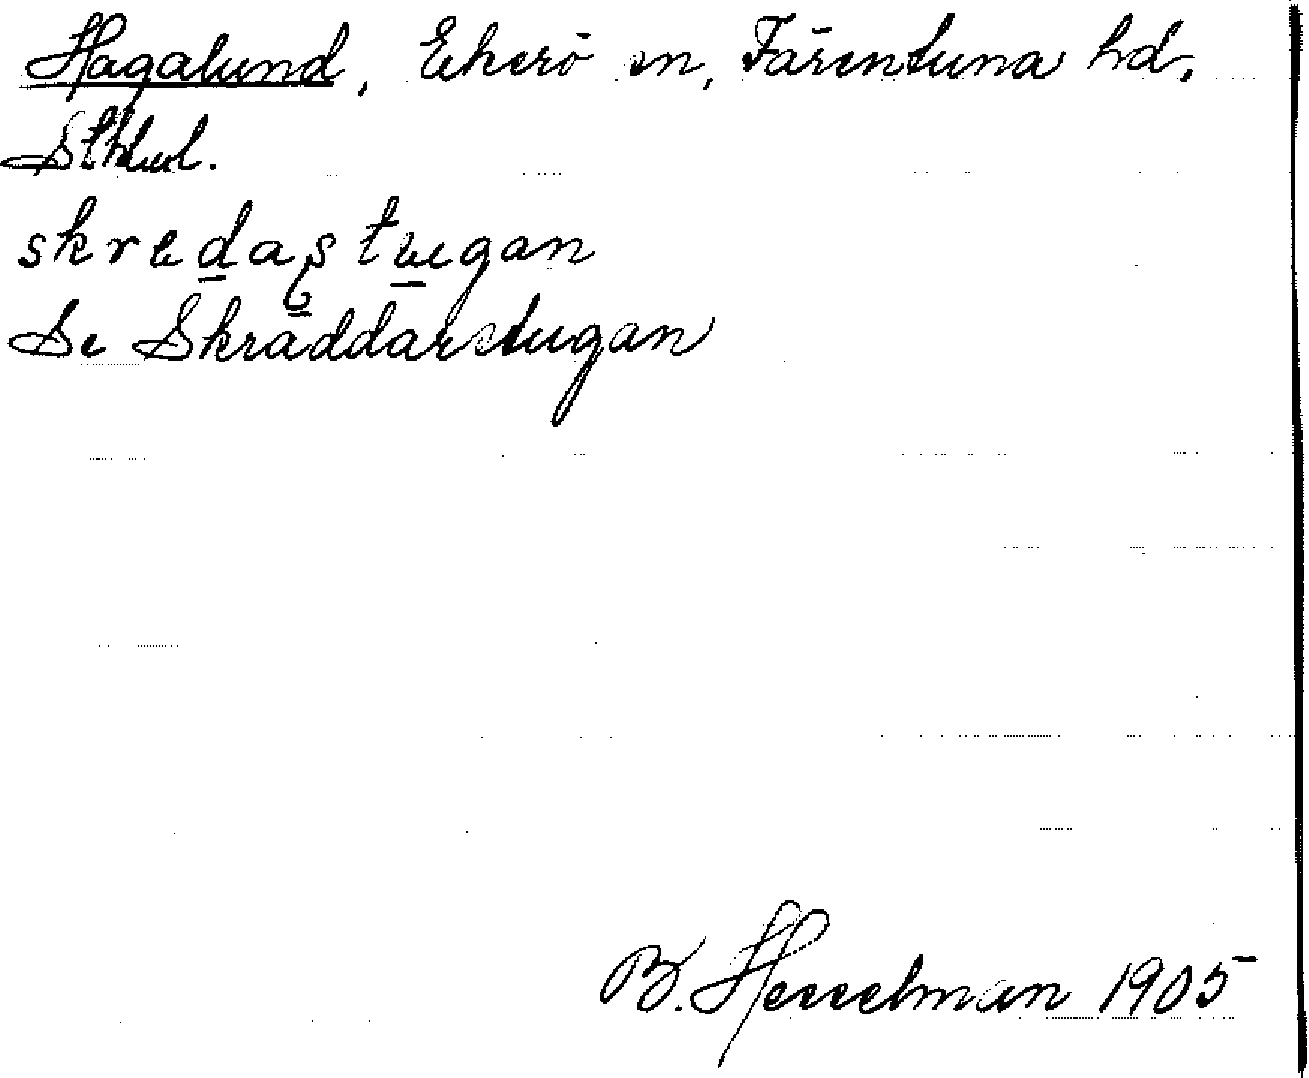 Hagalund, Ekerö sn, Färentuna hd,
Sthlml.
skredaʂtugan
Se Skräddarstugan
B. Hesselman 1905